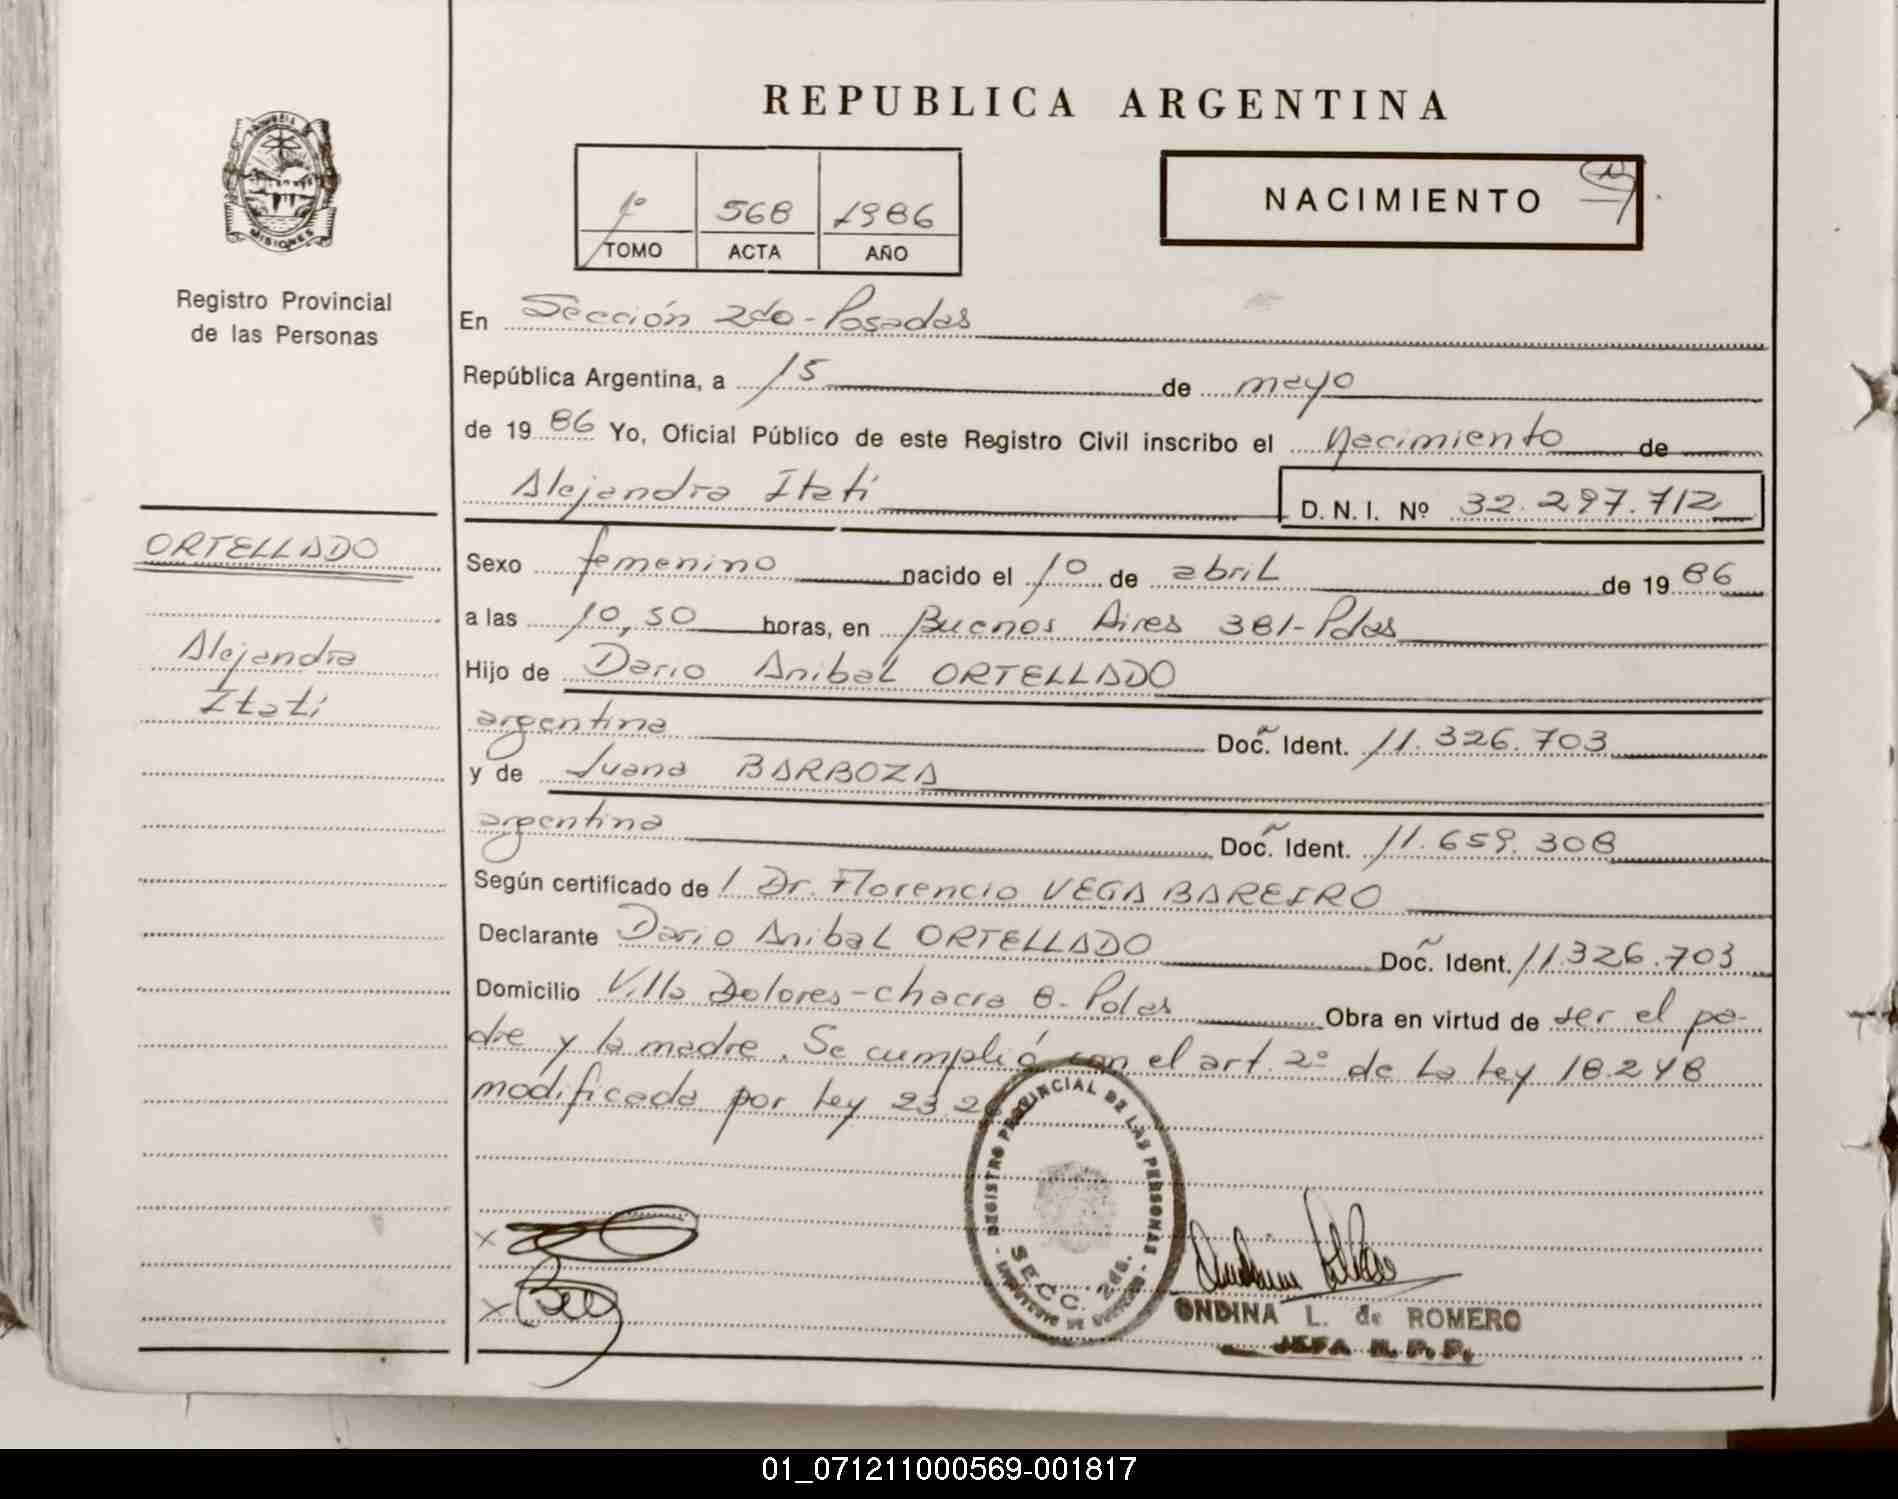 REPUBLICA ARGENTINA
1º 568 1986
TOMO ACTA AÑO
NACIMIENTO
PROVINCIA DE
MISIONES
Registro Provincial
de las Personas
En Sección 2do - Posadas
República Argentina, a 15 de mayo
de 1986 Yo, Oficial Público de este Registro Civil inscribo el Nacimiento de
Alejandra Itatí
D. N. I. Nº 32.297.712
ORTELLADO
Alejandra
Itatí
Sexo femenino nacido el 10 de abril de 1986
a las 10,50 horas, en Buenos Aires 381-Pdas
Hijo de Dario Anibal ORTELLADO
argentina Doc. Ident. 11.326.703
y de Juana BARBOZA
argentina Doc. Ident. 11.659.308
Según certificado de / Dr. Florencio VEGA BAREIRO
Declarante Dario Anibal ORTELLADO Doc. Ident. 11.326.703
Domicilio Villa Dolores-chacra 8- Pdas Obra en virtud de ser el pa-
dre y la madre. Se cumplió con el art. 2º de la Ley 18.248
modificada por Ley 23.26
REGISTRO PROVINCIAL DE LAS PERSONAS
SECC. 2da.
ONDINA L. de ROMERO
JEFA R. P. P.
01_071211000569-001817